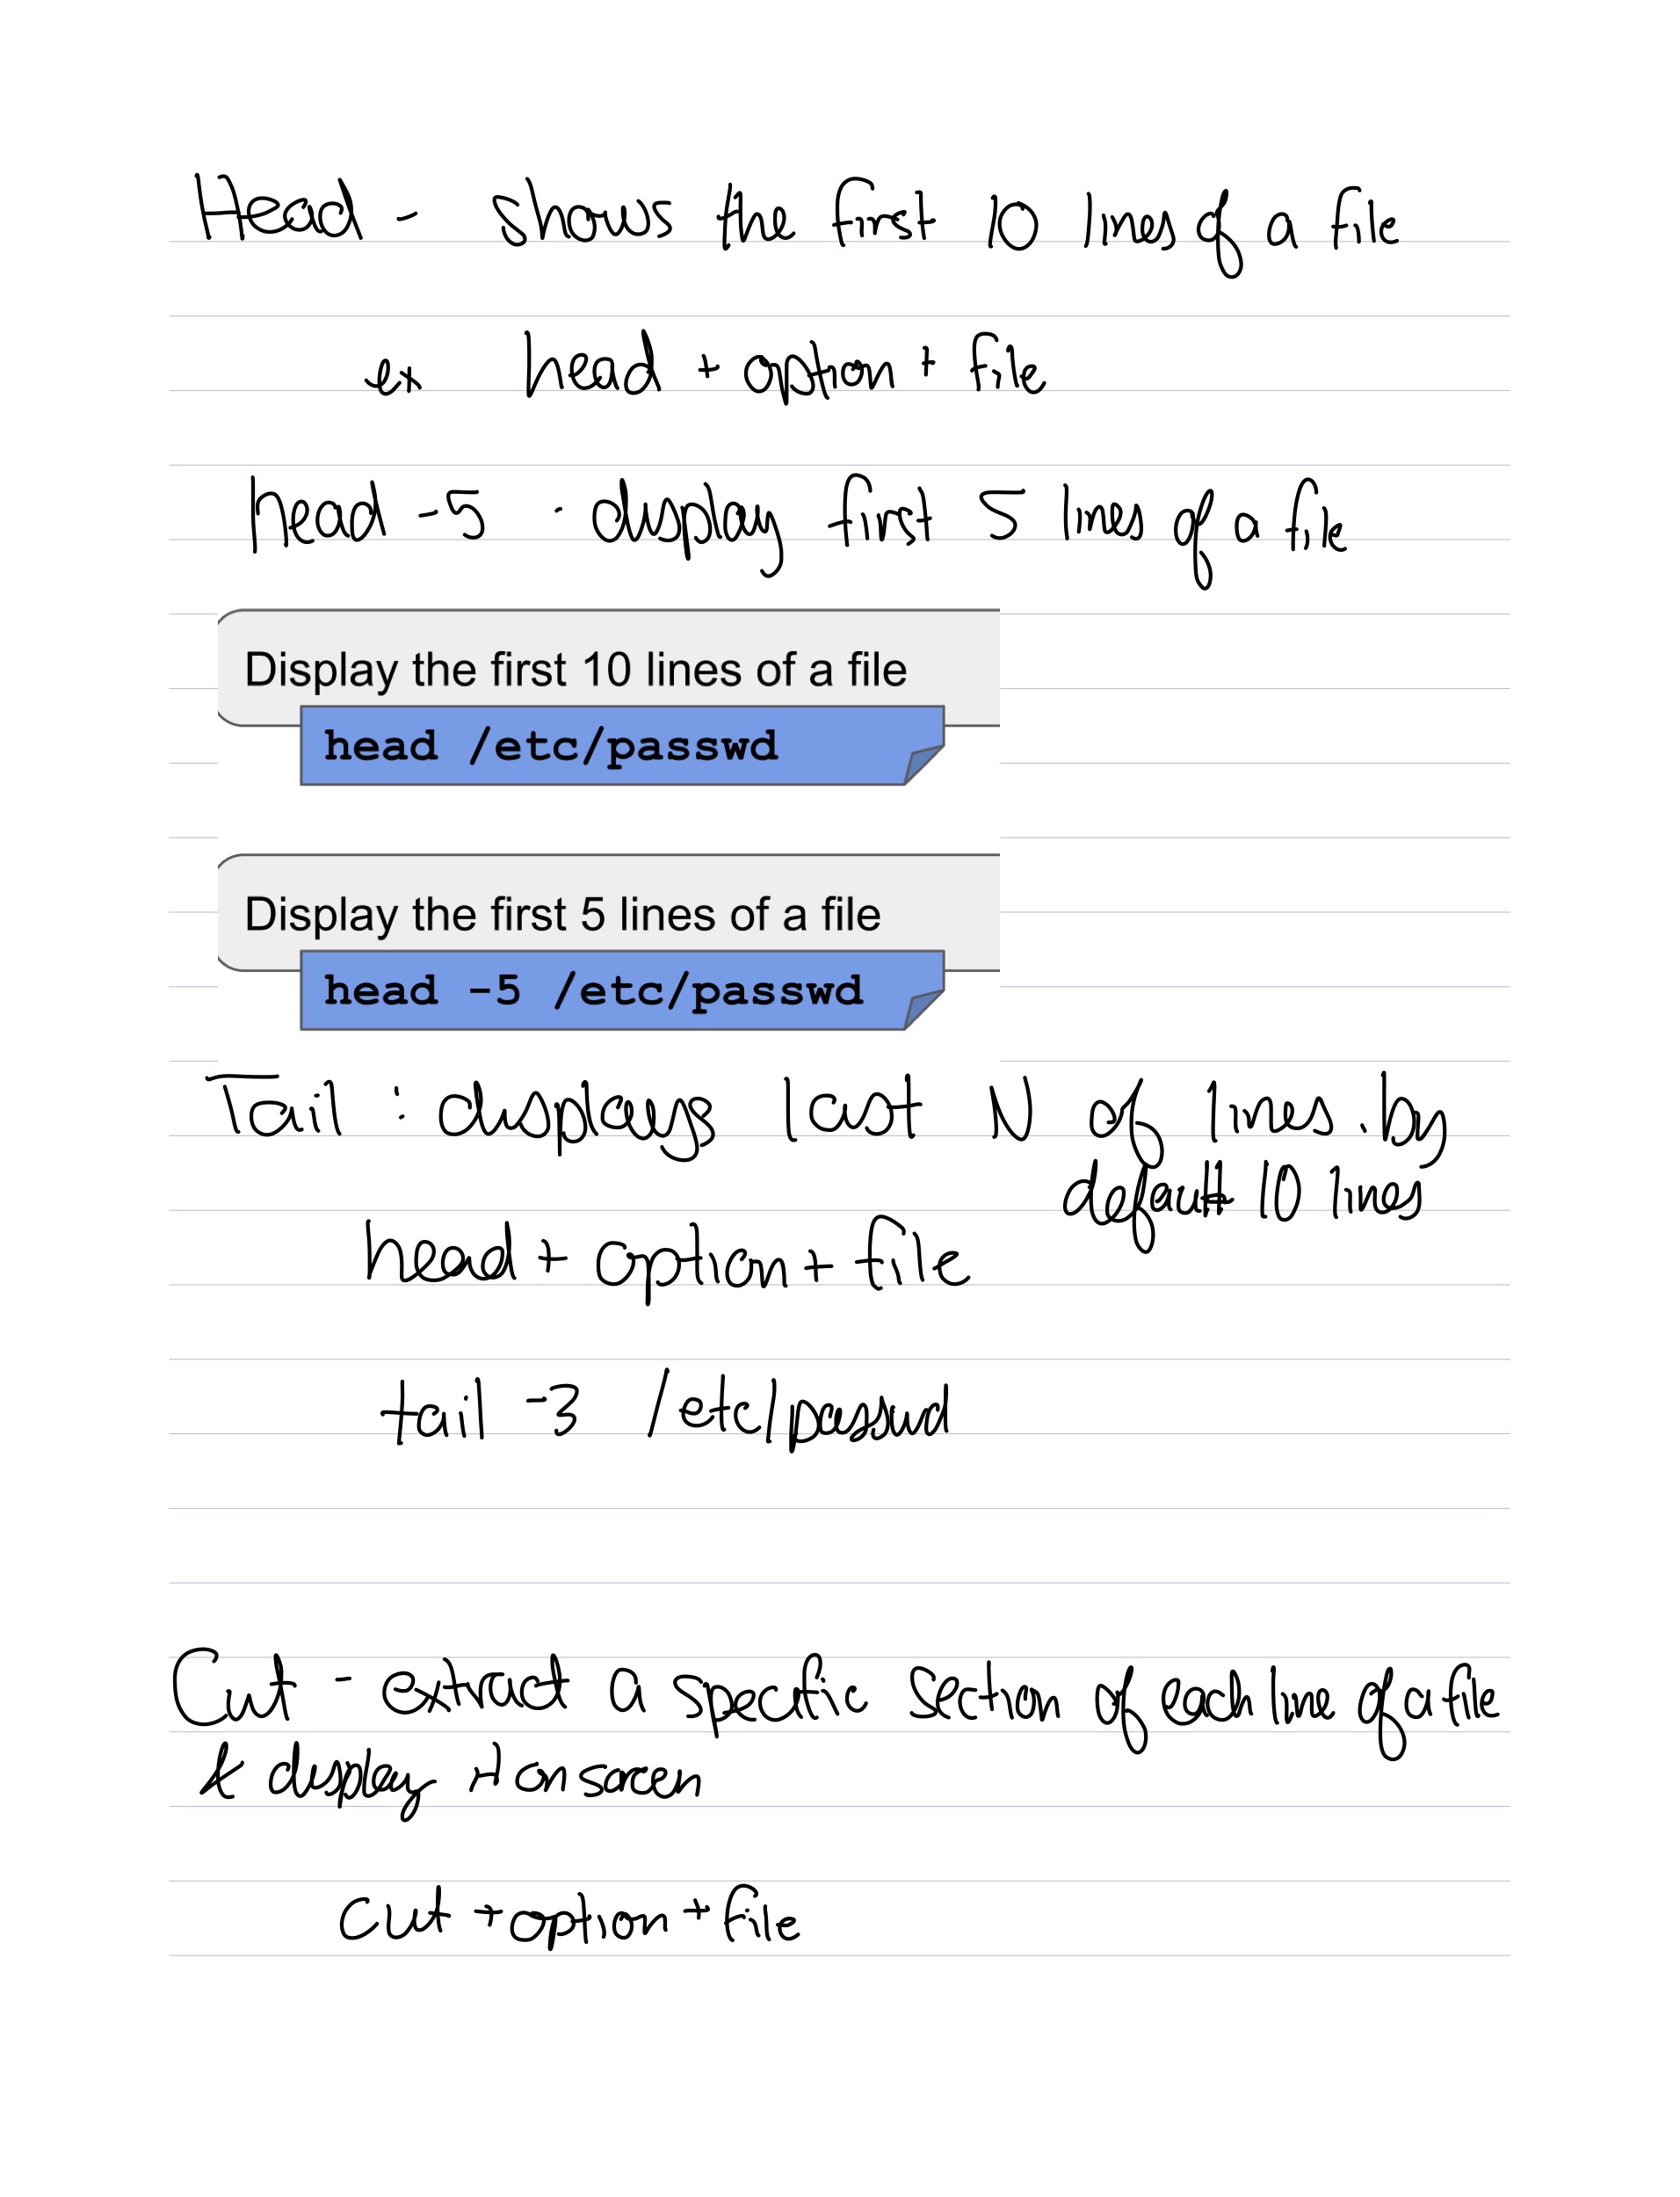 Head - shows the first 10 lines of a file
ex head + option + file
head -5 - display first 5 lines of a file
Display the first 10 lines of a file
head /etc/passwd
Display the first 5 lines of a file
head -5 /etc/passwd
Tail : displays last N of lines. by
default 10 lines
head + option + file
tail -3 /etc/passwd
Cut - extract a specific section of each line of a file
& display it on screen
cut + option + file